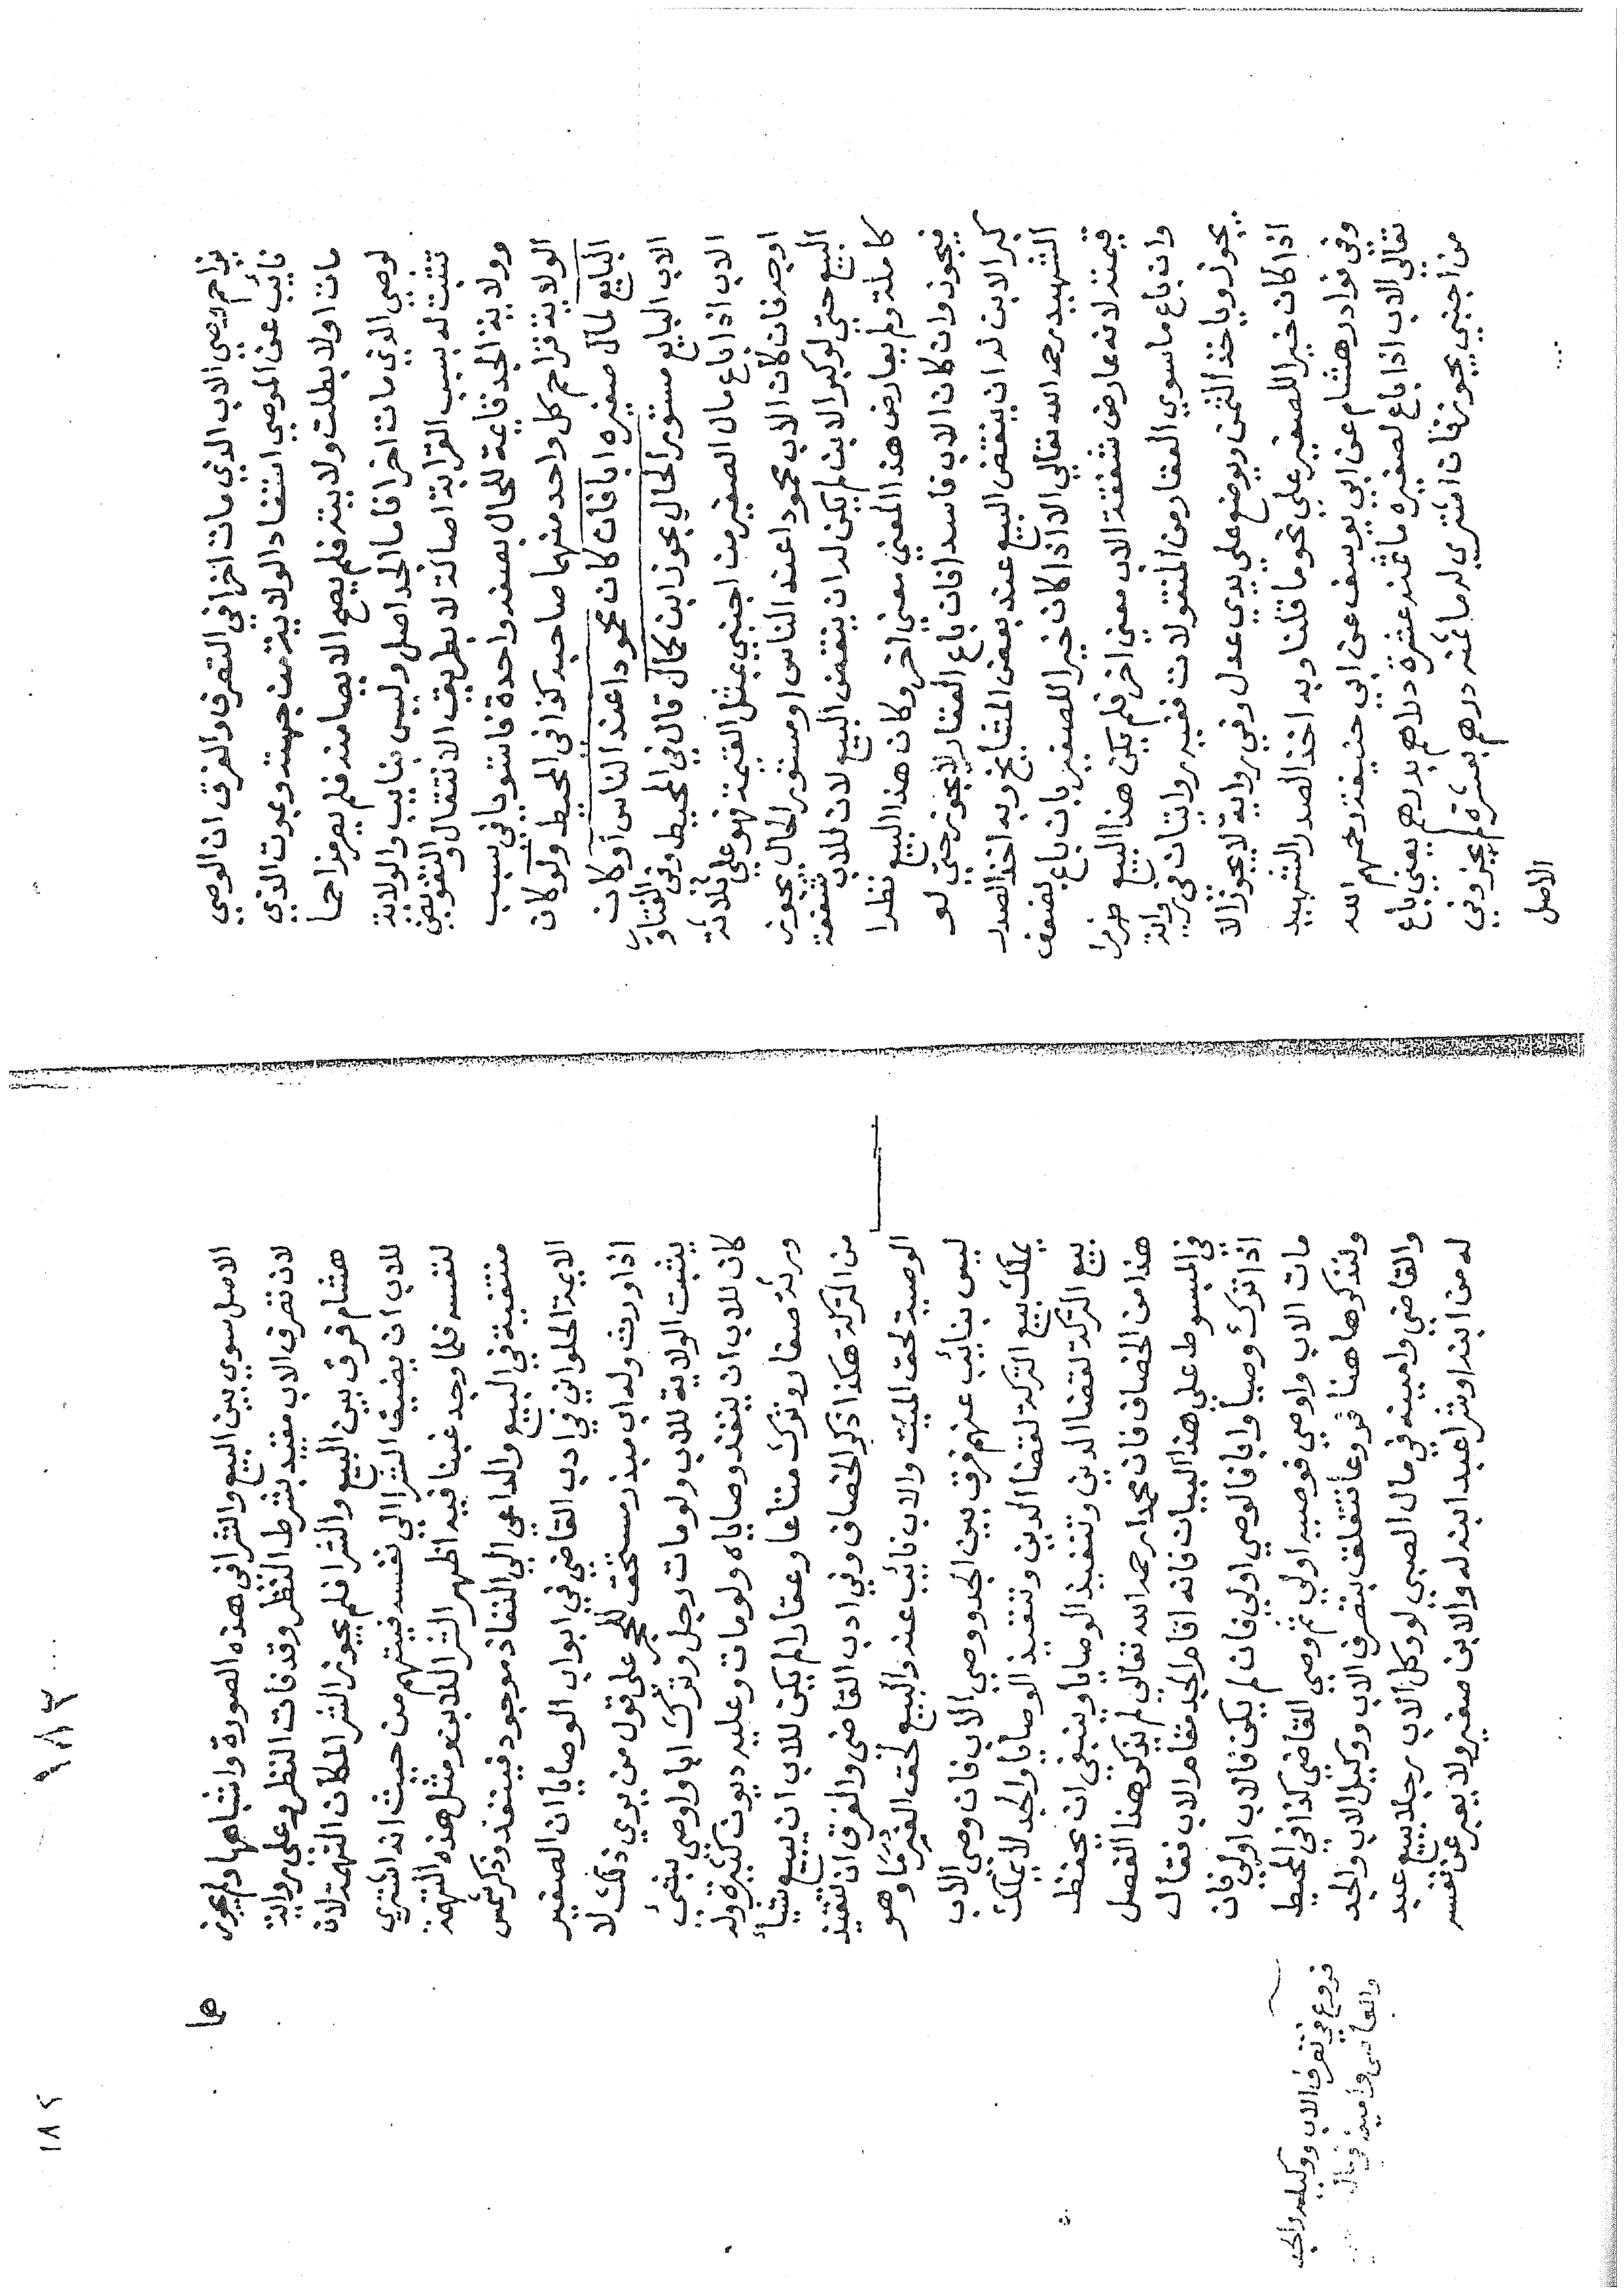 يزاحم وصي الاب الذي مات اخرا في التصرف والفرق ان الوصي
نائب عن الموصي استفاد الولاية من جهته وبموت الذي
مات اولا بطلت ولايته فلم يصح الايصا منه فلم يعر مزاحما
لوصي الذي مات اخرا فاما الجد اصل وليس بنايب والولاية
تثبت له بسبب القرابة اصالة لا بطريق الانتقال والتفويض
وولاية الجد قايمة للحال بصفة واحدة فاستويا في سبب
الولاية فتزاحم كل واحد منهما صاحبه كذا في المحيط ولو كان
البايع لمال صغيره ابا فان كان محمودا عند الناس او كان
الاب البايع مستور الحال يجوز ابن كمال قال في المحيط وفي الفتاوي
الاب اذا باع مال الصغير من اجنبي بمثل القيمة فهو علي ثلاثة
اوجه فان كان الاب محمودا عند الناس او مستور الحال يجوز
البيع حتي لو كبر الابن لم يكن له ان ينقض البيع لان للاب شفقة
كاملة ولم يعارض هذا المعني معني اخر وكان هذا البيع نظرا
فيجوز وان كان الاب فاسدا فان باع العقار لا يجوز حتي لو
كبر الابن له ان ينقض البيع عند بعض المشايخ وبه اخذ الصدر
الشهيد رحمه الله تعالي الا اذا كان خيرا للصغير بان باع بضعف
قيمته لانه عارض شفقة الاب معني اخر فلم يكن هذا البيع نظرا
وان باع ما سوي العقار من المنقولات ففيه روايتان في رواية
يجوز وياخذ الثمن ويوضع علي يدي عدل وفي رواية لا يجوز الا
اذا كان خيرا للصغير علي نحو ما قلنا وبه اخذ الصدر الشهيد
وفي نوادر هشام عن ابي يوسف عن ابي حنيفة رحمهم الله
تعالي الاب اذا باع لصغيره ما ثمنه عشرة دراهم بدرهم يعني باع
من اجنبي يجوز فان اشتري له ما ثمنه درهم بعشرة لم يجز وفي
الاصل
٩٨٣
١٨٢
ها
الاصل سوي بين البيع والشرا في هذه الصورة واشباهها ولم يجوز
لان تصرف الاب مقيد بشرط النظر وقد فات النظر وعلي رواية
هشام فرق بين البيع والشرا فلم يجوز الشرا لمكان التهمة لان
للاب ان يضيف الشرا الي نفسه فيتهم من حيث انه اشتري
لنفسه فلما وجد غبنا فيه اظهر الشرا للابن ومثل هذه التهمة
منتفية في البيع والداعي الي النفاذ موجود فينفذ وذكر شمس
الايمة الحلواني في ادب القاضي في ابواب الوصايا ان الصغير
اذا ورث ولداب مبذر مستحق للحجر علي قول من يري ذلك لا
يثبت الولاية للاب ولو مات رجل وترك ابا واوصي بشيء
كان للاب ان ينفذ وصاياه ولو مات وعليه ديون كثيرة وله
ورثة صغار وترك متاعا وعقارا لم يكن للاب ان يبيع شيأ
من التركة هكذا ذكر الخصاف في ادب القاضي والفرق ان تنفيذ
الوصية لحق الميت والاب نائب عنه والبيع لحق الغرما وهو
ليس بنائب عنهم فرق بين الجد ووصي الاب فان وصي الاب
يملك بيع التركة لقضا الدين وتنفيذ الوصايا والجد لا يملك
بيع التركة لقضا الدين وتنفيذ الوصايا وينبغي ان يحفظ
هذا من الخصاف فان محمدا رحمه الله تعالي لم يذكر هذا الفصل
في المبسوط علي هذا البيان فانه اقام الجد مقام الاب فقال
اذا ترك وصيا وابا فالوصي اولي فان لم يكن فالاب اولي فان
مات الاب واوصي فوصيه اولي ثم وصي القاضي كذا في المحيط
ولنذكر هاهنا فروعا تتعلق بتصرف الاب ووكيل الاب والجد
والقاضي وامينه في مال الصبي لو وكل الاب رجلا ببيع عبد
له من ابنه او شرا عبد ابنه له والابن صغير لا يعبر عن نفسه
فروع في تصرف الاب ووكيله والجد
والقاضي وامينه في مال